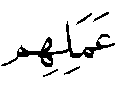 عَمَلِهِم